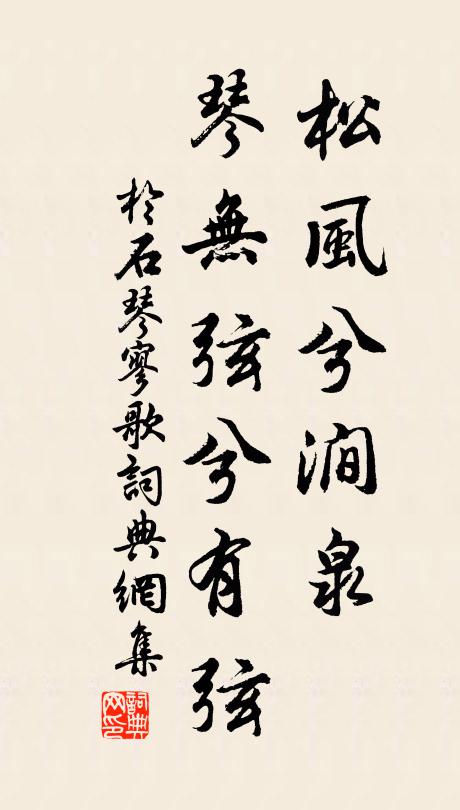 松風兮澗泉
琴無弦兮有弦
於石琴寥歌詞典網集
詞典
网印